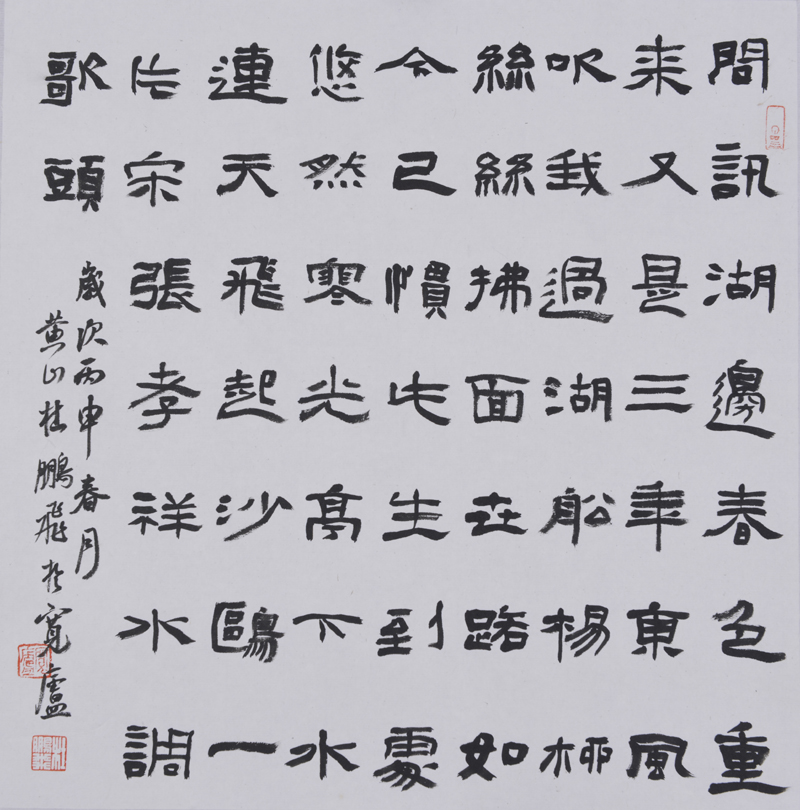 問訊湖邊春色重
来又是三年東風
吹我過湖船楊柳
絲絲拂面世路如
今已慣此生到處
悠然寒光亭下水
連天飛起沙鷗一
片宋張孝祥水調
歌頭
歲次丙申春月
黄山杜鵬飛於寬廬